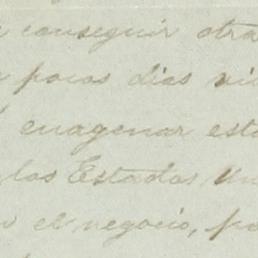 conseguir otra
pocos dias
enagenar
los Estados Un
el negocio, p